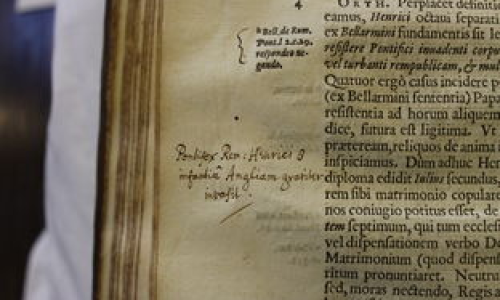 4
ORTH. Perplacet definiti
eamus, Henrici octavi separat
ex Bellarmini fundamentis sit le
resistere Pontifici invadenti corpo
vel turbanti rempublicam, & mul
Quatuor ergò casus incidere p
(ex Bellarmini sententia) Papa
resistentia ad horum aliquem
dice, futura est legitima. Vt
præteream, reliquos de anima i
inspiciamus. Dùm adhuc Hen
diploma edidit Iulius secundus,
rem sibi matrimonio copulare
nos coniugio potitus esset, de
tem septimum, qui tum ecclesi
vel dispensationem verbo De
Matrimonium (quod dispens
ritum pronuntiaret. Neutru
sed, moras nectendo, Regis a
Bell. de Rom.
Pont. l 2. c. 29.
respondeo ne-
gando.
Pontifex Rom: Henrico 8
Angliam graviter
invasit.